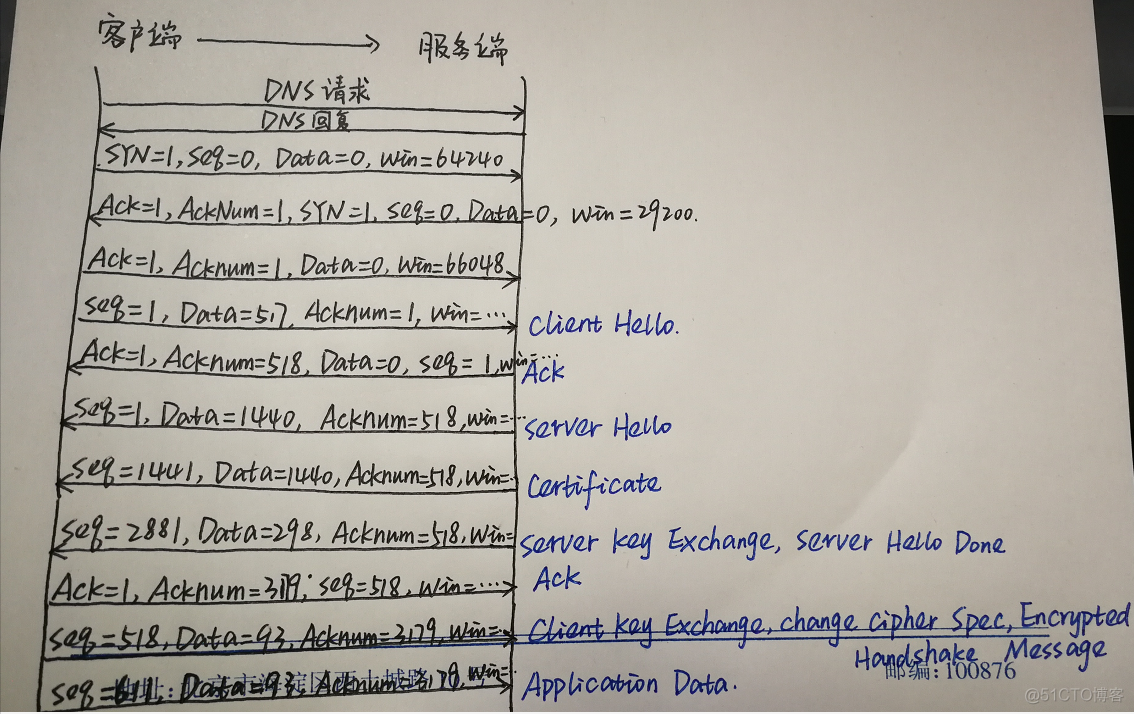 客户端 服务端
DNS 请求
DNS 回复
SYN=1, Seq=0, Data=0, Win=64240
Ack=1, AckNum=1, SYN=1, Seq=0, Data=0, Win=29200.
Ack=1, Acknum=1, Data=0, Win=66048
seq=1, Data=517, Acknum=1, Win=… Client Hello.
Ack=1, Acknum=518, Data=0, seq=1, win=… Ack
seq=1, Data=1440, Acknum=518, win=… server Hello
seq=1441, Data=1440, Acknum=518, Win=… Certificate
seq=2881, Data=298, Acknum=518, Win= server key Exchange, server Hello Done
Ack=1, Acknum=3179, seq=518, Win=… Ack
seq=518, Data=93, Acknum=3179, Win=… Client key Exchange, change Cipher Spec, Encrypted
Handshake Message
邮编:100876
seq=611, Data=93, Acknum= Win=… Application Data.
@51CTO博客